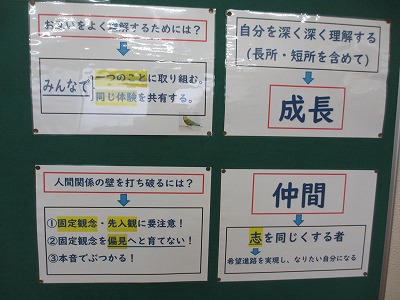 お互いをよく理解するためには？
みんなで
一つのことに取り組む。
同じ体験を共有する。
自分を深く深く理解する
（長所・短所を含めて）
成長
人間関係の壁を打ち破るには？
①固定観念・先入観に要注意！
②固定観念を偏見へと育てない！
③本音でぶつかる！
仲間
志を同じくする者
希望進路を実現し、なりたい自分になる